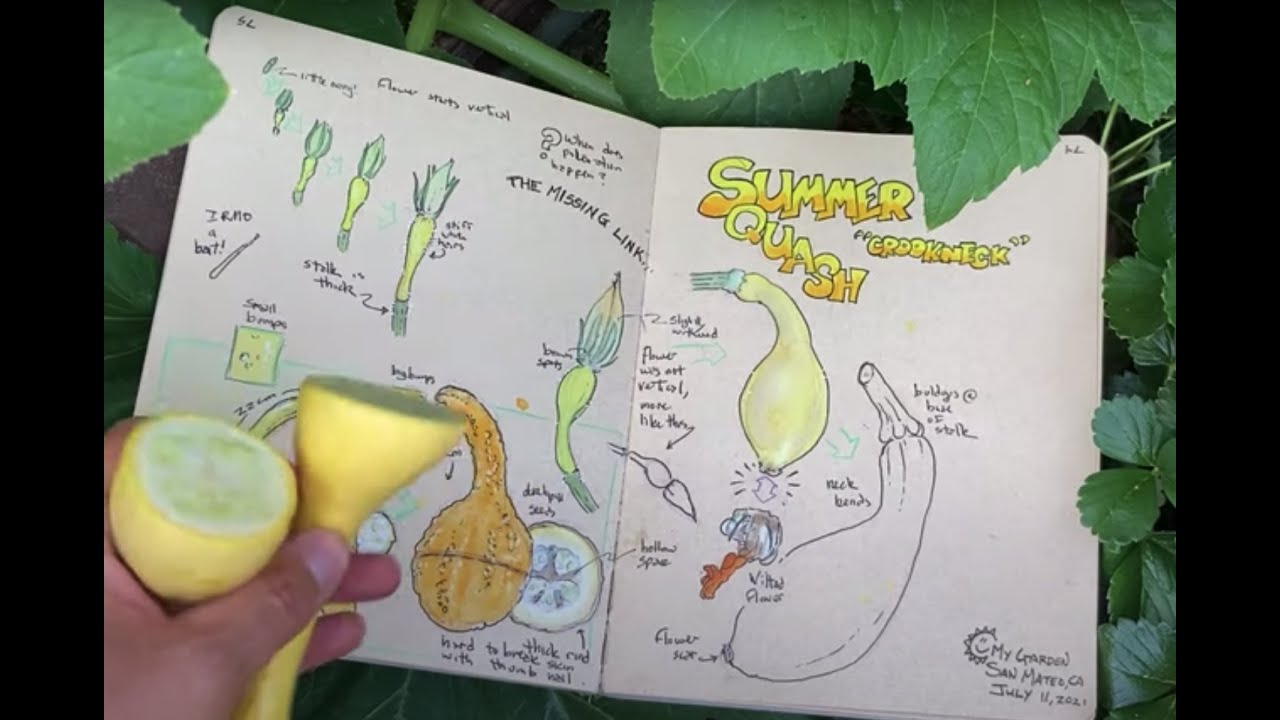 little nong!
Flower starts vertical
? When does
pollenation
happen?
THE MISSING LINK...
I RMD
a
bat!
stiff
with
hairs
stalk is
thick
small
bumps
22 cm
big bumps
brown
spots
developed
seeds
hollow
space
thick rind
hard to break skin
with thumb nail.
SUMMER
QUASH
"CROOKNECK"
slightly
wilted
flower
was not
vertical,
more
like this
buldges @
base
of
stalk
neck
bends
Wilted
flower
flower
scar
MY GARDEN
SAN MATEO, CA
JULY 11, 2021